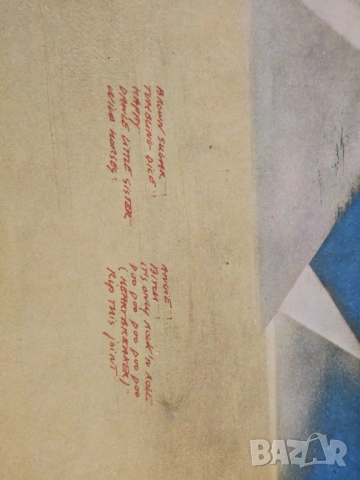 BROWN SUGAR
TUMBLING-DICE
HAPPY
DANCE LITTLE SISTER
WILD HORSES
ANGIE
BITCH
IT'S ONLY ROCK'N ROLL
DOO DOO DOO DOO DOO
(HEARTBREAKER)
RIP THIS JOINT
BAZAR